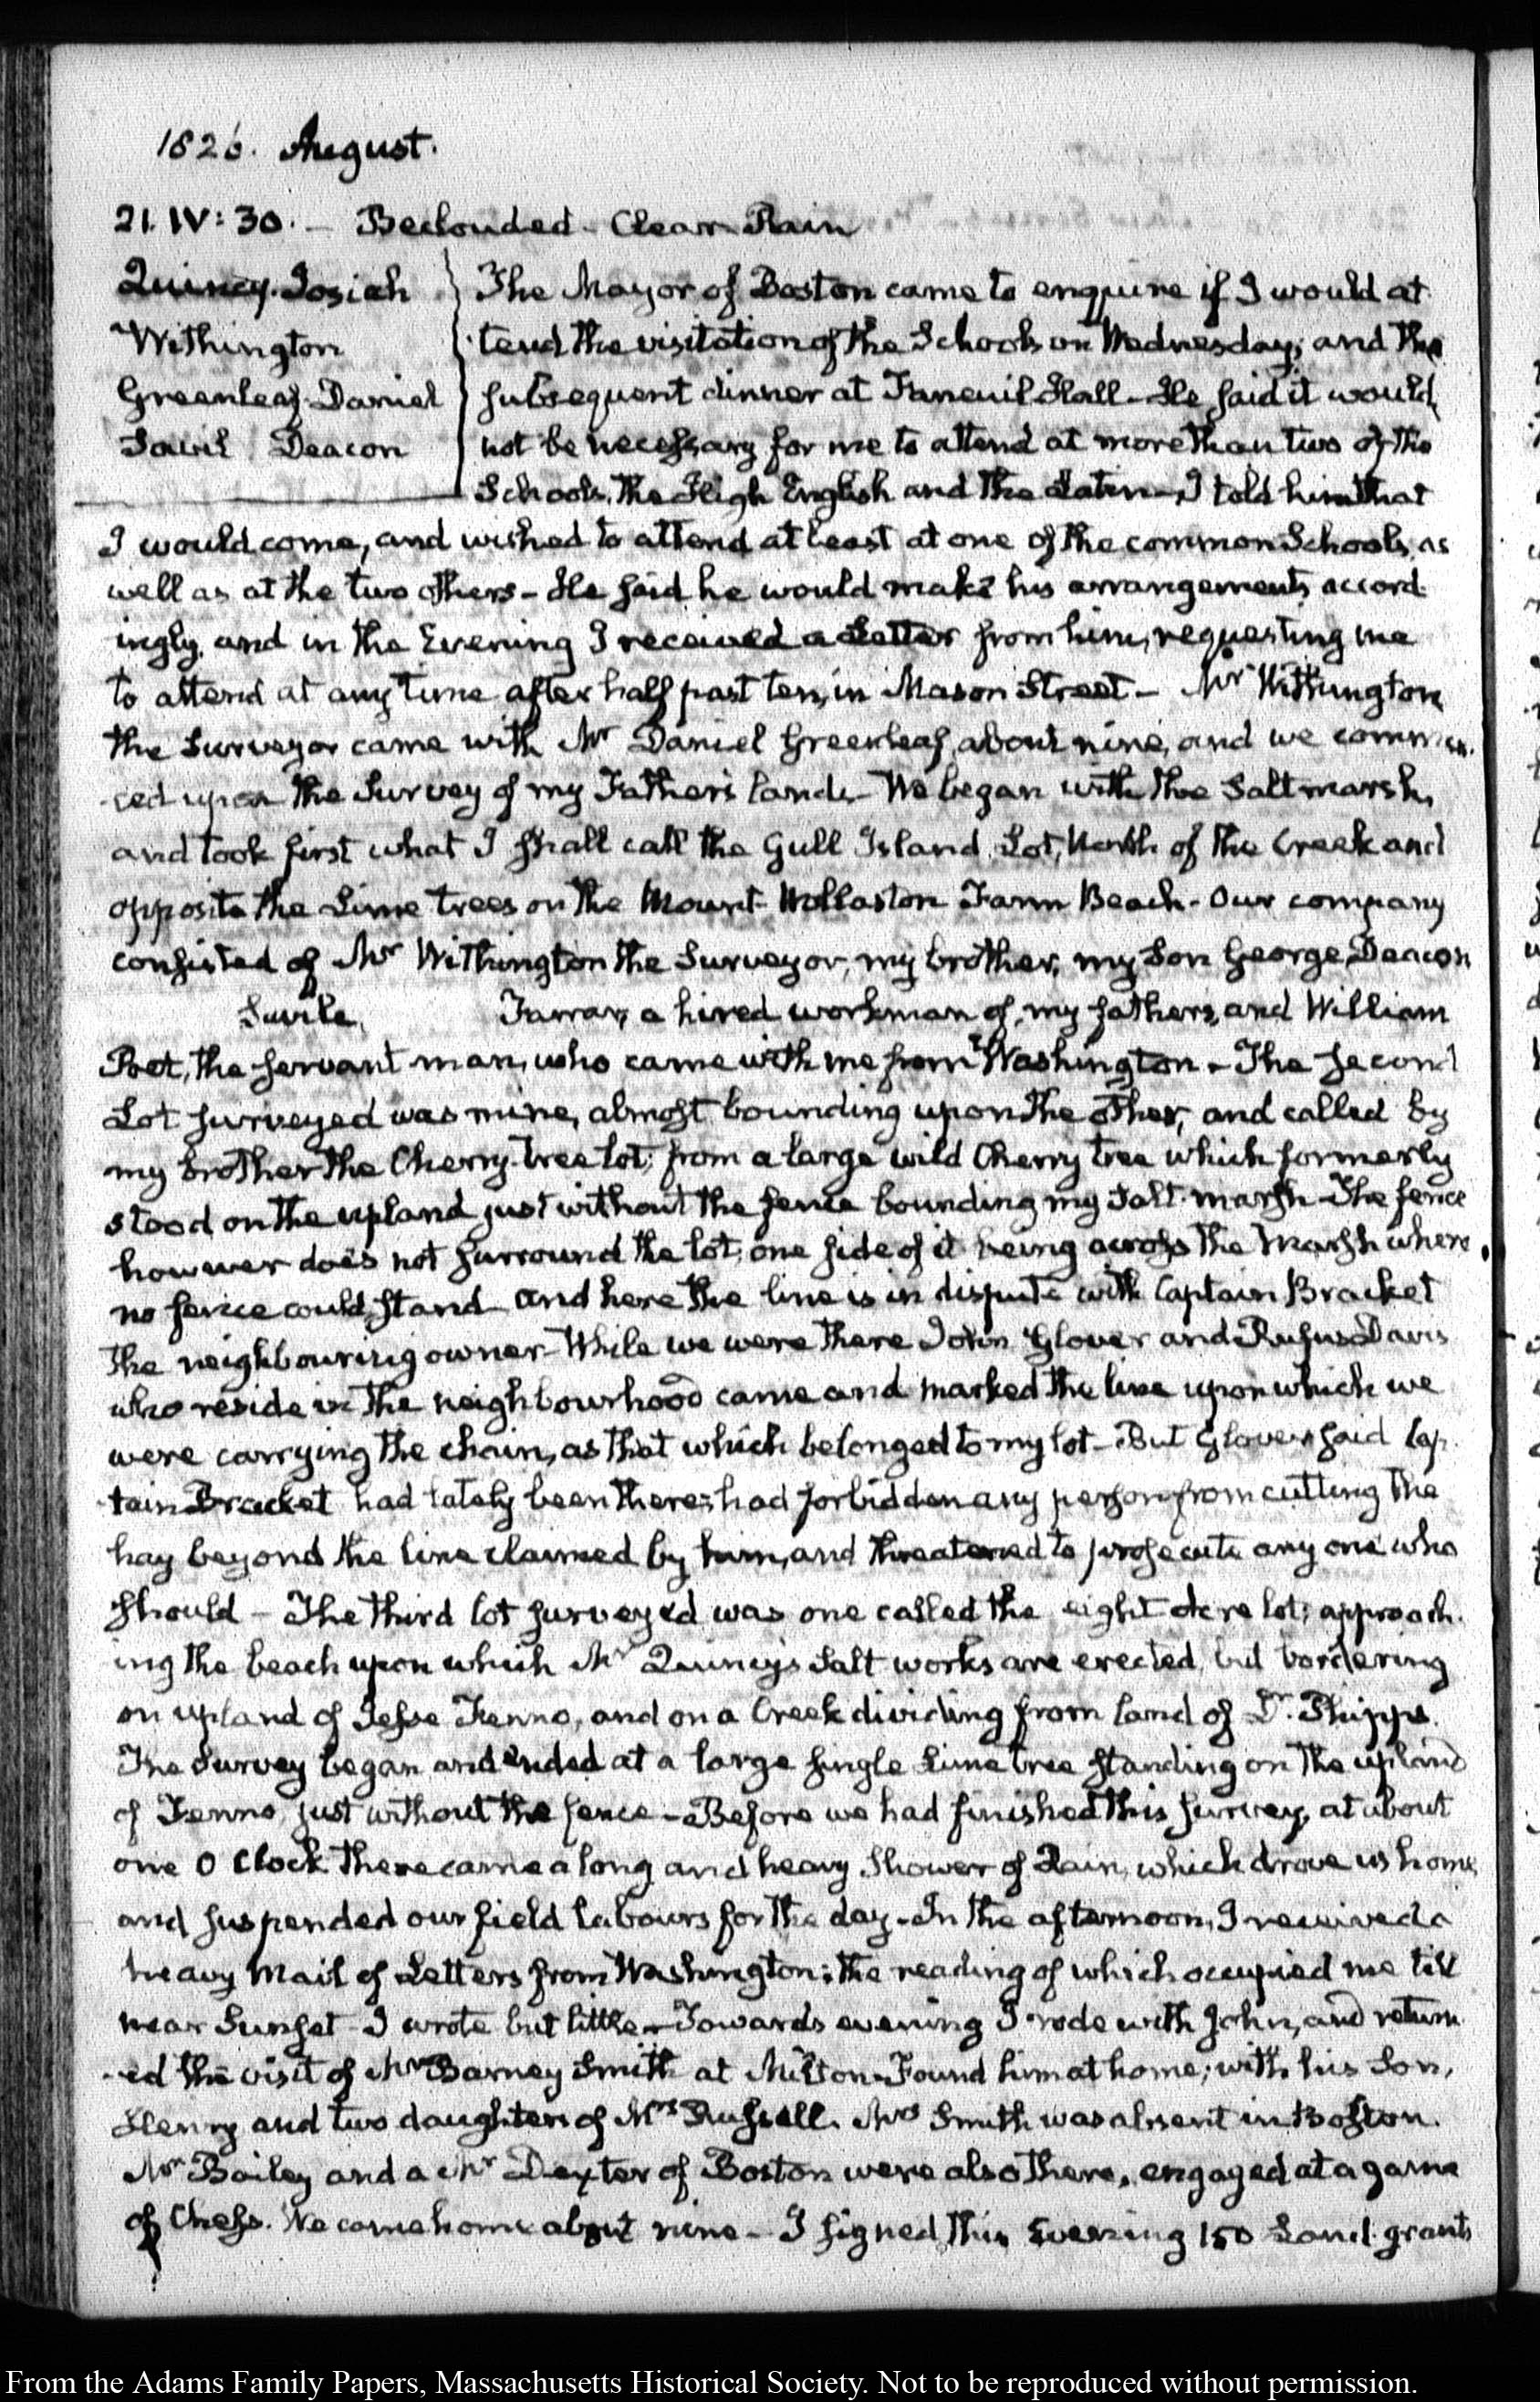 1826. August.
21. IV: 30. — Beclouded - Clear - Rain
Quincy. Josiah
Withington
Greenleaf. Daniel
Savil Deacon
The Mayor of Boston came to enquire if I would at-
tend the visitation of the Schools on Wednesday, and the
subsequent dinner at Faneuil Hall - He said it would
not be necessary for me to attend at more than two of the
Schools, the High English and the Latin - I told him that
I would come, and wished to attend at least at one of the common Schools, as
well as at the two others - He said he would make his arrangements accord-
ingly, and in the Evening I received a Letter from him, requesting me
to attend at any time after half past ten, in Mason Street - Mr Withington
the Surveyor came with Mr Daniel Greenleaf, about nine, and we commen-
ced upon the Survey of my Father's lands - We began with the Salt marsh,
and took first what I shall call the Gull Island Lot, North of the Creek and
opposite the Lime trees on the Mount-Wollaston Farm Beach - Our company
consisted of Mr Withington the Surveyor, my brother, my Son George, Deacon
Savile, Farrar, a hired workman of my fathers, and William
Post, the servant man, who came with me from Washington - The second
Lot surveyed was mine, almost bounding upon the other, and called by
my brother the Cherry-tree lot; from a large wild Cherry tree which formerly
stood on the upland just without the fence bounding my Salt-marsh - The fence
however does not surround the lot; one side of it being across the Marsh where
no fence could stand - and here the line is in dispute with Captain Bracket
the neighbouring owner - While we were there John Glover and Rufus Davis
who reside in the neighbourhood came and marked the line upon which we
were carrying the chain, as that which belonged to my lot - But Glover said Cap-
tain Bracket had lately been there; had forbidden any person from cutting the
hay beyond the line claimed by him, and threatened to prosecute any one who
should - The third lot surveyed was one called the eight Acre lot; approach-
ing the beach upon which Mr Quincy's Salt works are erected, but bordering
on upland of Jesse Fenno, and on a Creek dividing from land of Dr. Phipps.
The Survey began and ended at a large single Lime tree standing on the upland
of Fenno just without the fence - Before we had finished this survey, at about
one O Clock there came a long and heavy Shower of Rain, which drove us home,
and suspended our field labours for the day - In the afternoon, I received a
heavy Mail of Letters from Washington; the reading of which occupied me till
near Sunset - I wrote but little - Towards evening I rode with John, and return-
ed the visit of Mr Barney Smith at Milton - Found him at home; with his Son,
Henry and two daughters of Mrs Russell. Mrs Smith was absent in Boston.
Mr Bailey and a Mr Dexter of Boston were also there, engaged at a game
of Chess. We came home about nine - I signed this Evening 150 Land grants
From the Adams Family Papers, Massachusetts Historical Society. Not to be reproduced without permission.